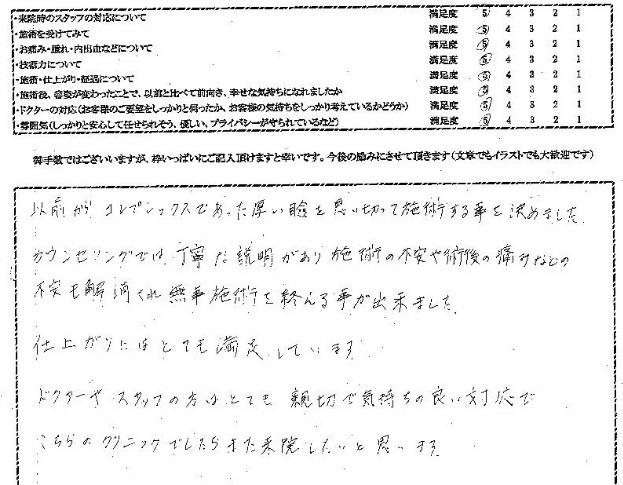 ・来院時のスタッフの対応について 満足度 5 4 3 2 1
・施術を受けてみて 満足度 5 4 3 2 1
・お痛み・腫れ・内出血などについて 満足度 5 4 3 2 1
・技術力について 満足度 5 4 3 2 1
・施術・仕上がり・経過について 満足度 5 4 3 2 1
・施術後、容姿が変わったことで、以前と比べて前向き、幸せな気持ちになれましたか 満足度 5 4 3 2 1
・ドクターの対応(お客様のご要望をしっかりと伺ったか、お客様の気持ちをしっかり考えているかどうか) 満足度 5 4 3 2 1
・雰囲気(しっかりと安心して任せられそう、優しい、プライバシーが守られているなど) 満足度 5 4 3 2 1
御手数ではございいますが、枠いっぱいにご記入頂けますと幸いです。今後の励みにさせて頂きます(文章でもイラストでも大歓迎です)
以前から コンプレックスであった厚い瞼を思い切って施術する事を決めました
カウンセリングでは、丁寧な説明があり施術の不安や術後の痛みなどの
不安も解消され無事施術を終える事が出来ました
仕上がりにはとても満足しています
ドクターや スタッフの方はとても 親切で気持ちの良い対応で
こちらのクリニックでしたらまた来院したいと思います